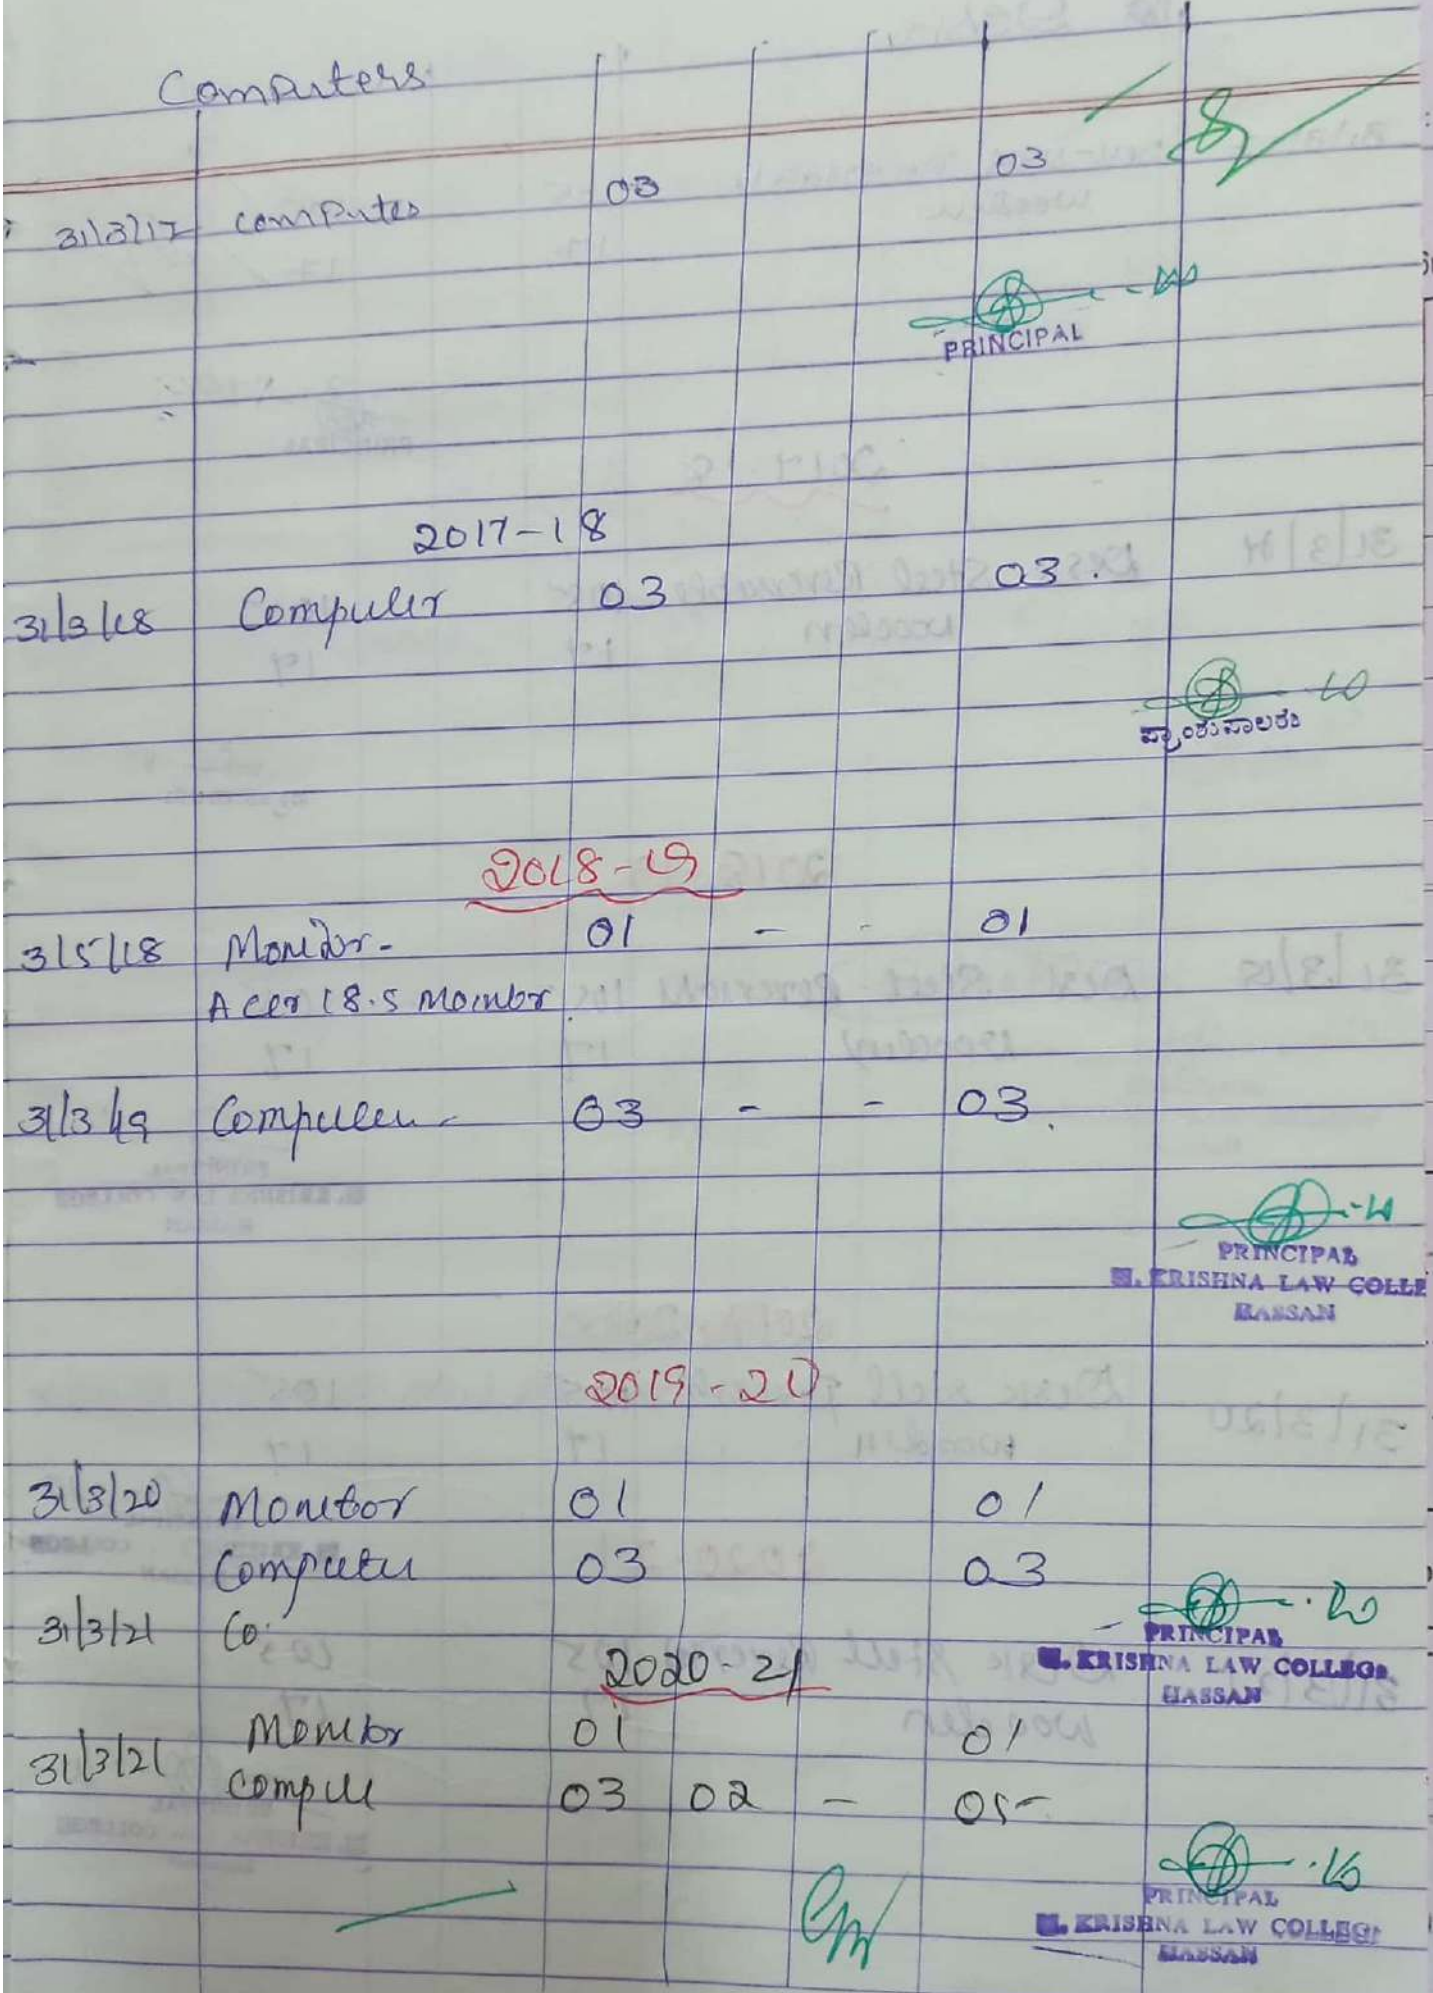 Computers
31/3/17 computer 03 03
PRINCIPAL
2017-18
31/3/18 Computer 03 03.
ಪ್ರಾಂಶುಪಾಲರು
2018-19
3/5/18 Monitor- 01 - - 01
Acer 18.5 Monitor
31/3/19 Computer - 03 - - 03.
PRINCIPAL
M. KRISHNA LAW COLLE
HASSAN
2019-20
31/3/20 Monitor 01 01
Computer 03 03
31/3/21 Co.
PRINCIPAL
M. KRISHNA LAW COLLEGE
HASSAN
2020-21
Monitor 01 01
31/3/21 Compute 03 02 - 05-
PRINCIPAL
M. KRISHNA LAW COLLEGE
HASSAN